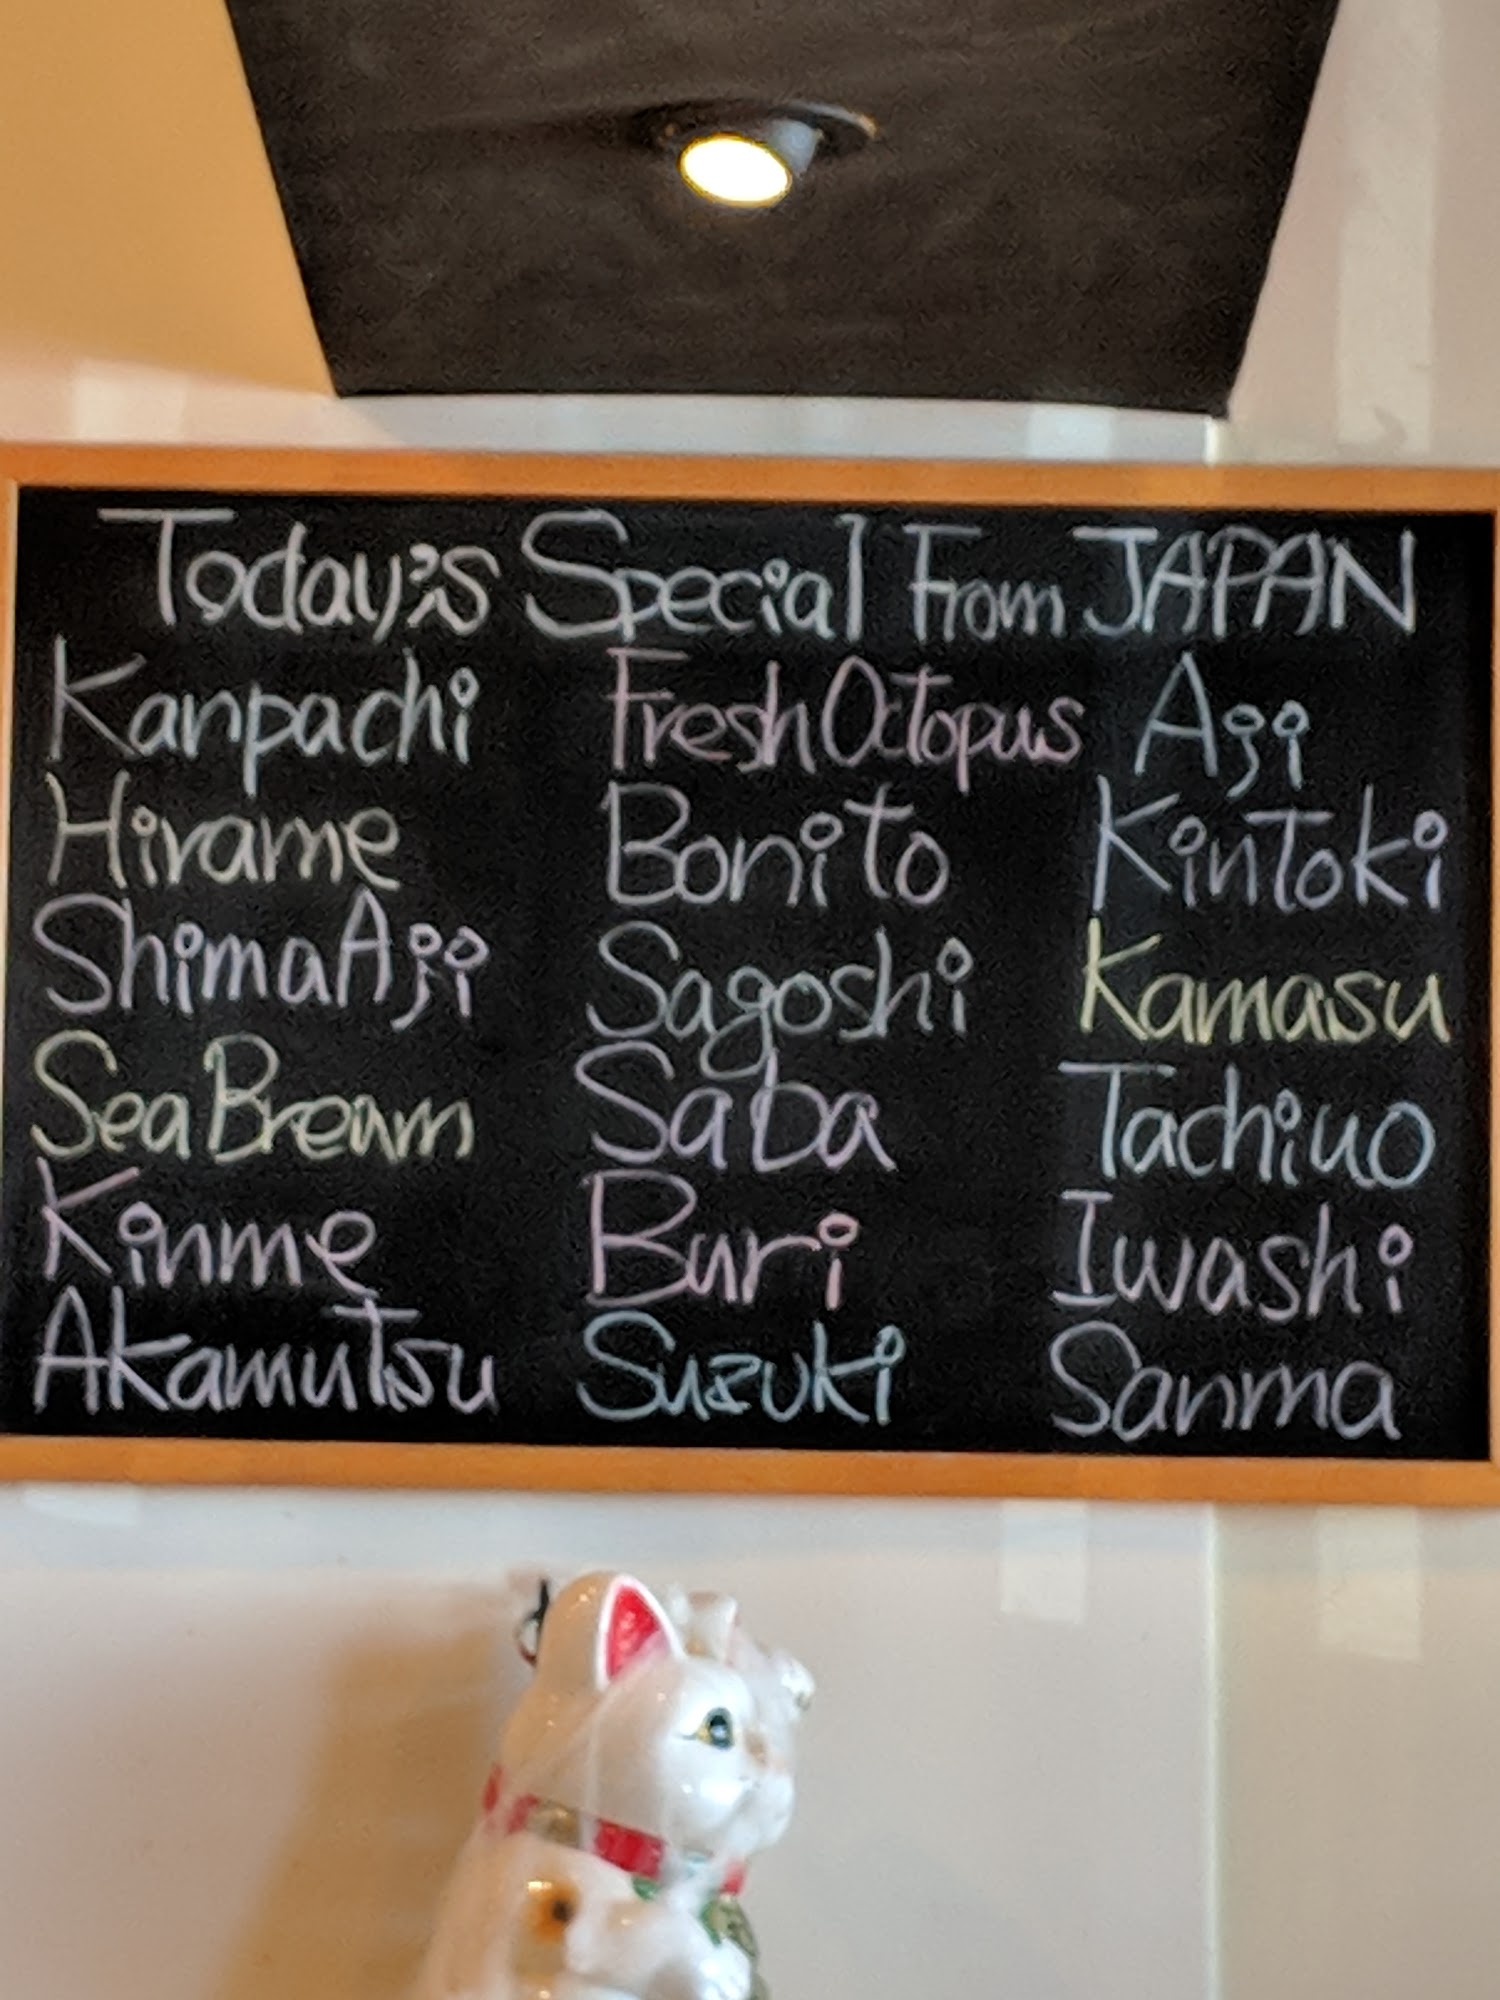 Today's Special From JAPAN
Kanpachi
Hirame
Shima Aji
Sea Bream
Kinme
Akamutsu
Fresh Octopus
Bonito
Sagoshi
Saba
Buri
Suzuki
Aji
Kintoki
Kamasu
Tachiuo
Iwashi
Sanma